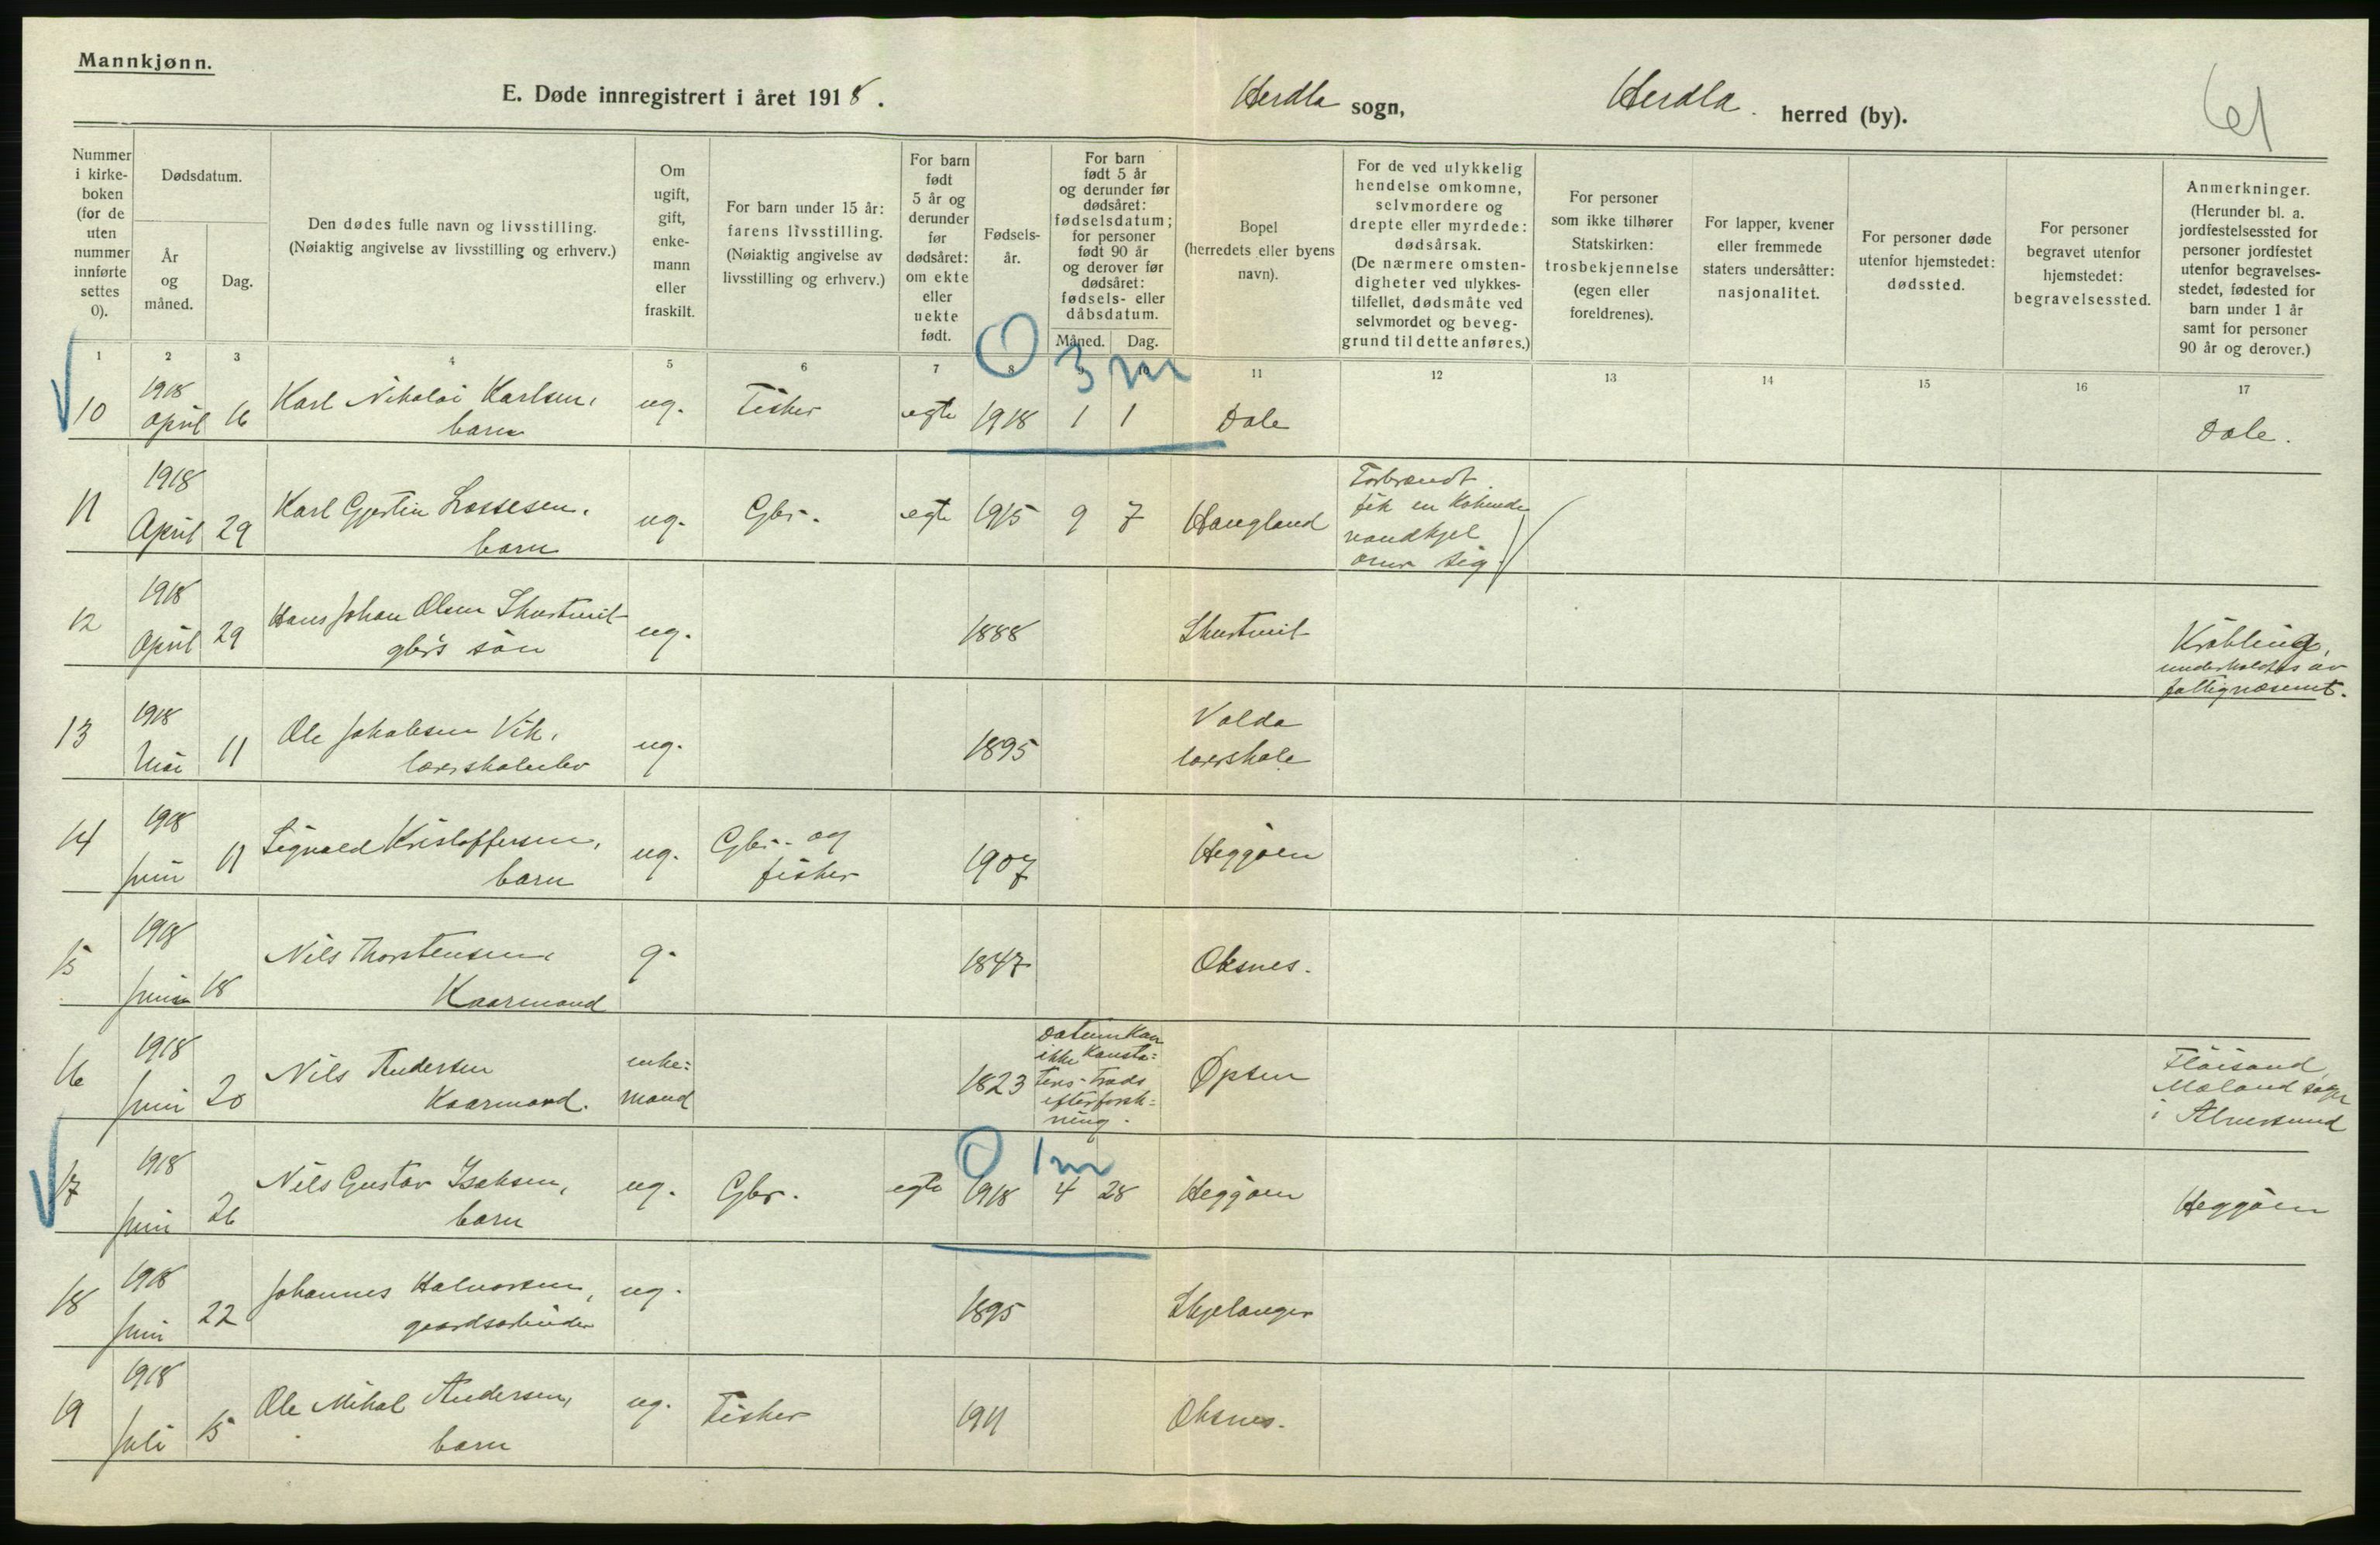 Mannkjønn.
E. Døde innregistrert i året 1918.
Herdla sogn,
Herdla herred (by).
61
Nummer
i kirke-
boken
(for de
uten
nummer
innførte
settes
0).
Dødsdatum.
År
og
måned.
Dag.
Den dødes fulle navn og livsstilling.
(Nøiaktig angivelse av livsstilling og erhverv.)
Om
ugift,
gift,
enke-
mann
eller
fraskilt.
For barn under 15 år:
farens livsstilling.
(Nøiaktig angivelse av
livsstilling og erhverv.)
For barn
født
5 år og
derunder
før
dødsåret:
om ekte
eller
uekte
født.
Fødsels-
år.
For barn
født 5 år
og derunder før
dødsåret:
fødselsdatum;
for personer
født 90 år
og derover før
dødsåret:
fødsels- eller
dåbsdatum.
Måned. Dag.
Bopel
(herredets eller byens
navn).
For de ved ulykkelig
hendelse omkomne,
selvmordere og
drepte eller myrdede:
dødsårsak.
(De nærmere omsten-
digheter ved ulykkes-
tilfellet, dødsmåte ved
selvmordet og beveg-
grund til dette anføres.)
For personer
som ikke tilhører
Statskirken:
trosbekjennelse
(egen eller
foreldrenes).
For lapper, kvener
eller fremmede
staters undersåtter:
nasjonalitet.
For personer døde
utenfor hjemstedet:
dødssted.
For personer
begravet utenfor
hjemstedet:
begravelsessted.
Anmerkninger.
(Herunder bl. a.
jordfestelsessted for
personer jordfestet
utenfor begravelses-
stedet, fødested for
barn under 1 år
samt for personer
90 år og derover.)
1 2 3 4 5 6 7 8 9 10 11 12 13 14 15 16 17
0 3 m
10 1918 April 16 Karl Nikolai Karlsen, barn ug. Fisker egte 1918 1 1 Dale Dale.
11 1918 April 29 Karl Gjertin Lassesen, barn ug. Gbr. egte 1915 9 7 Haugland
Forbrændt
fik en kokende
vandkjel
over sig.
12 1918 April 29 Hans Johan Olsen Skurtveit gbr's søn ug. 1888 Skurtveit
Krøbling,
underholdtes av
fattigvæsenet.
13 1918 Mai 11 Ole Jakobsen Vik, lærerskoleelev ug. 1895 Volda lærerskole
14 1918 Juni 11 Sigvald Kristoffersen, barn ug. Gbr. og fisker 1907 Heggøen
15 1918 Juni 18 Nils Thorstensen, Kaarmand g. 1847 Oksnes.
16 1918 Juni 20 Nils Andersen Kaarmand. enke= mand 1823
Datum kan
ikke konsta=
teres trods
efterforsk=
ning.
Øpsen
Fløisand,
Mæland sogn
i Alversund
0 1 m
17 1918 Juni 26 Nils Gustav Isaksen, barn ug. Gbr. egte 1918 4 28 Heggøen Heggøen
18 1918 Juni 22 Johannes Halvorsen, gaardsarbeider ug. 1895 Skjelanger
19 1918 Juli 15 Ole Mikal Andersen, barn ug. Fisker 1911 Oksnes.